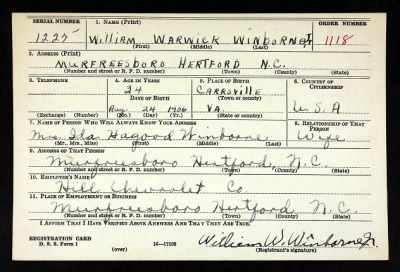 SERIAL NUMBER 1. NAME (Print) ORDER NUMBER
1225 WILLIAM WARWICK WINBORNE, Jr 1118
(First) (Middle) (Last)
2. ADDRESS (Print)
MURFREESBORO HERTFORD N.C.
(Number and street or R. F. D. number) (Town) (County) (State)
3. TELEPHONE 4. AGE IN YEARS 5. PLACE OF BIRTH 6. COUNTRY OF CITIZENSHIP
34 CARRSVILLE
DATE OF BIRTH (Town or county)
Aug. 24 1906 VA. U.S.A
(Exchange) (Number) (Mo.) (Day) (Yr.) (State or country)
7. NAME OF PERSON WHO WILL ALWAYS KNOW YOUR ADDRESS 8. RELATIONSHIP OF THAT PERSON
Mrs. Ida Winborne Wife
(Mr., Mrs., Miss) (First) (Middle) (Last)
9. ADDRESS OF THAT PERSON
Murfreesboro Hertford, N.C.
(Number and street or R. F. D. number) (Town) (County) (State)
10. EMPLOYER'S NAME
Hill Chevrolet Co.
11. PLACE OF EMPLOYMENT OR BUSINESS
Murfreesboro Hertford, N.C.
(Number and street or R. F. D. number) (Town) (County) (State)
I AFFIRM THAT I HAVE VERIFIED ABOVE ANSWERS AND THAT THEY ARE TRUE.
REGISTRATION CARD
D. S. S. Form 1 (over) 16—17105 William W. Winborne Jr.
(Registrant's signature)